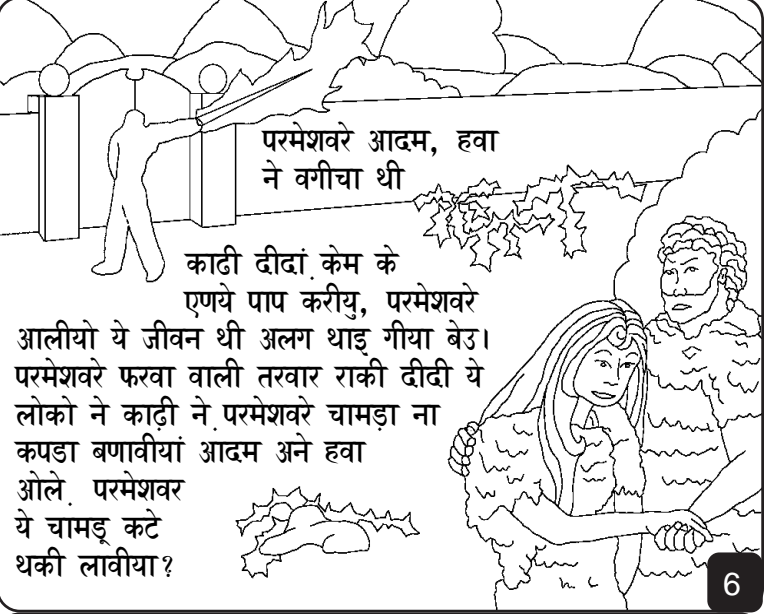 परमेशवरे आदम, हवा
ने वगीचा थी
काढी दीदां. केम के
एणये पाप करीयु, परमेशवरे
आलीयो ये जीवन थी अलग थाइ गीया बेउ।
परमेशवरे फरवा वाली तरवार राकी दीदी ये
लोको ने काढ़ी ने. परमेशवरे चामड़ा ना
कपडा बणावीयां आदम अने हवा
ओले. परमेशवर
ये चामडू कटे
थकी लावीया?
6